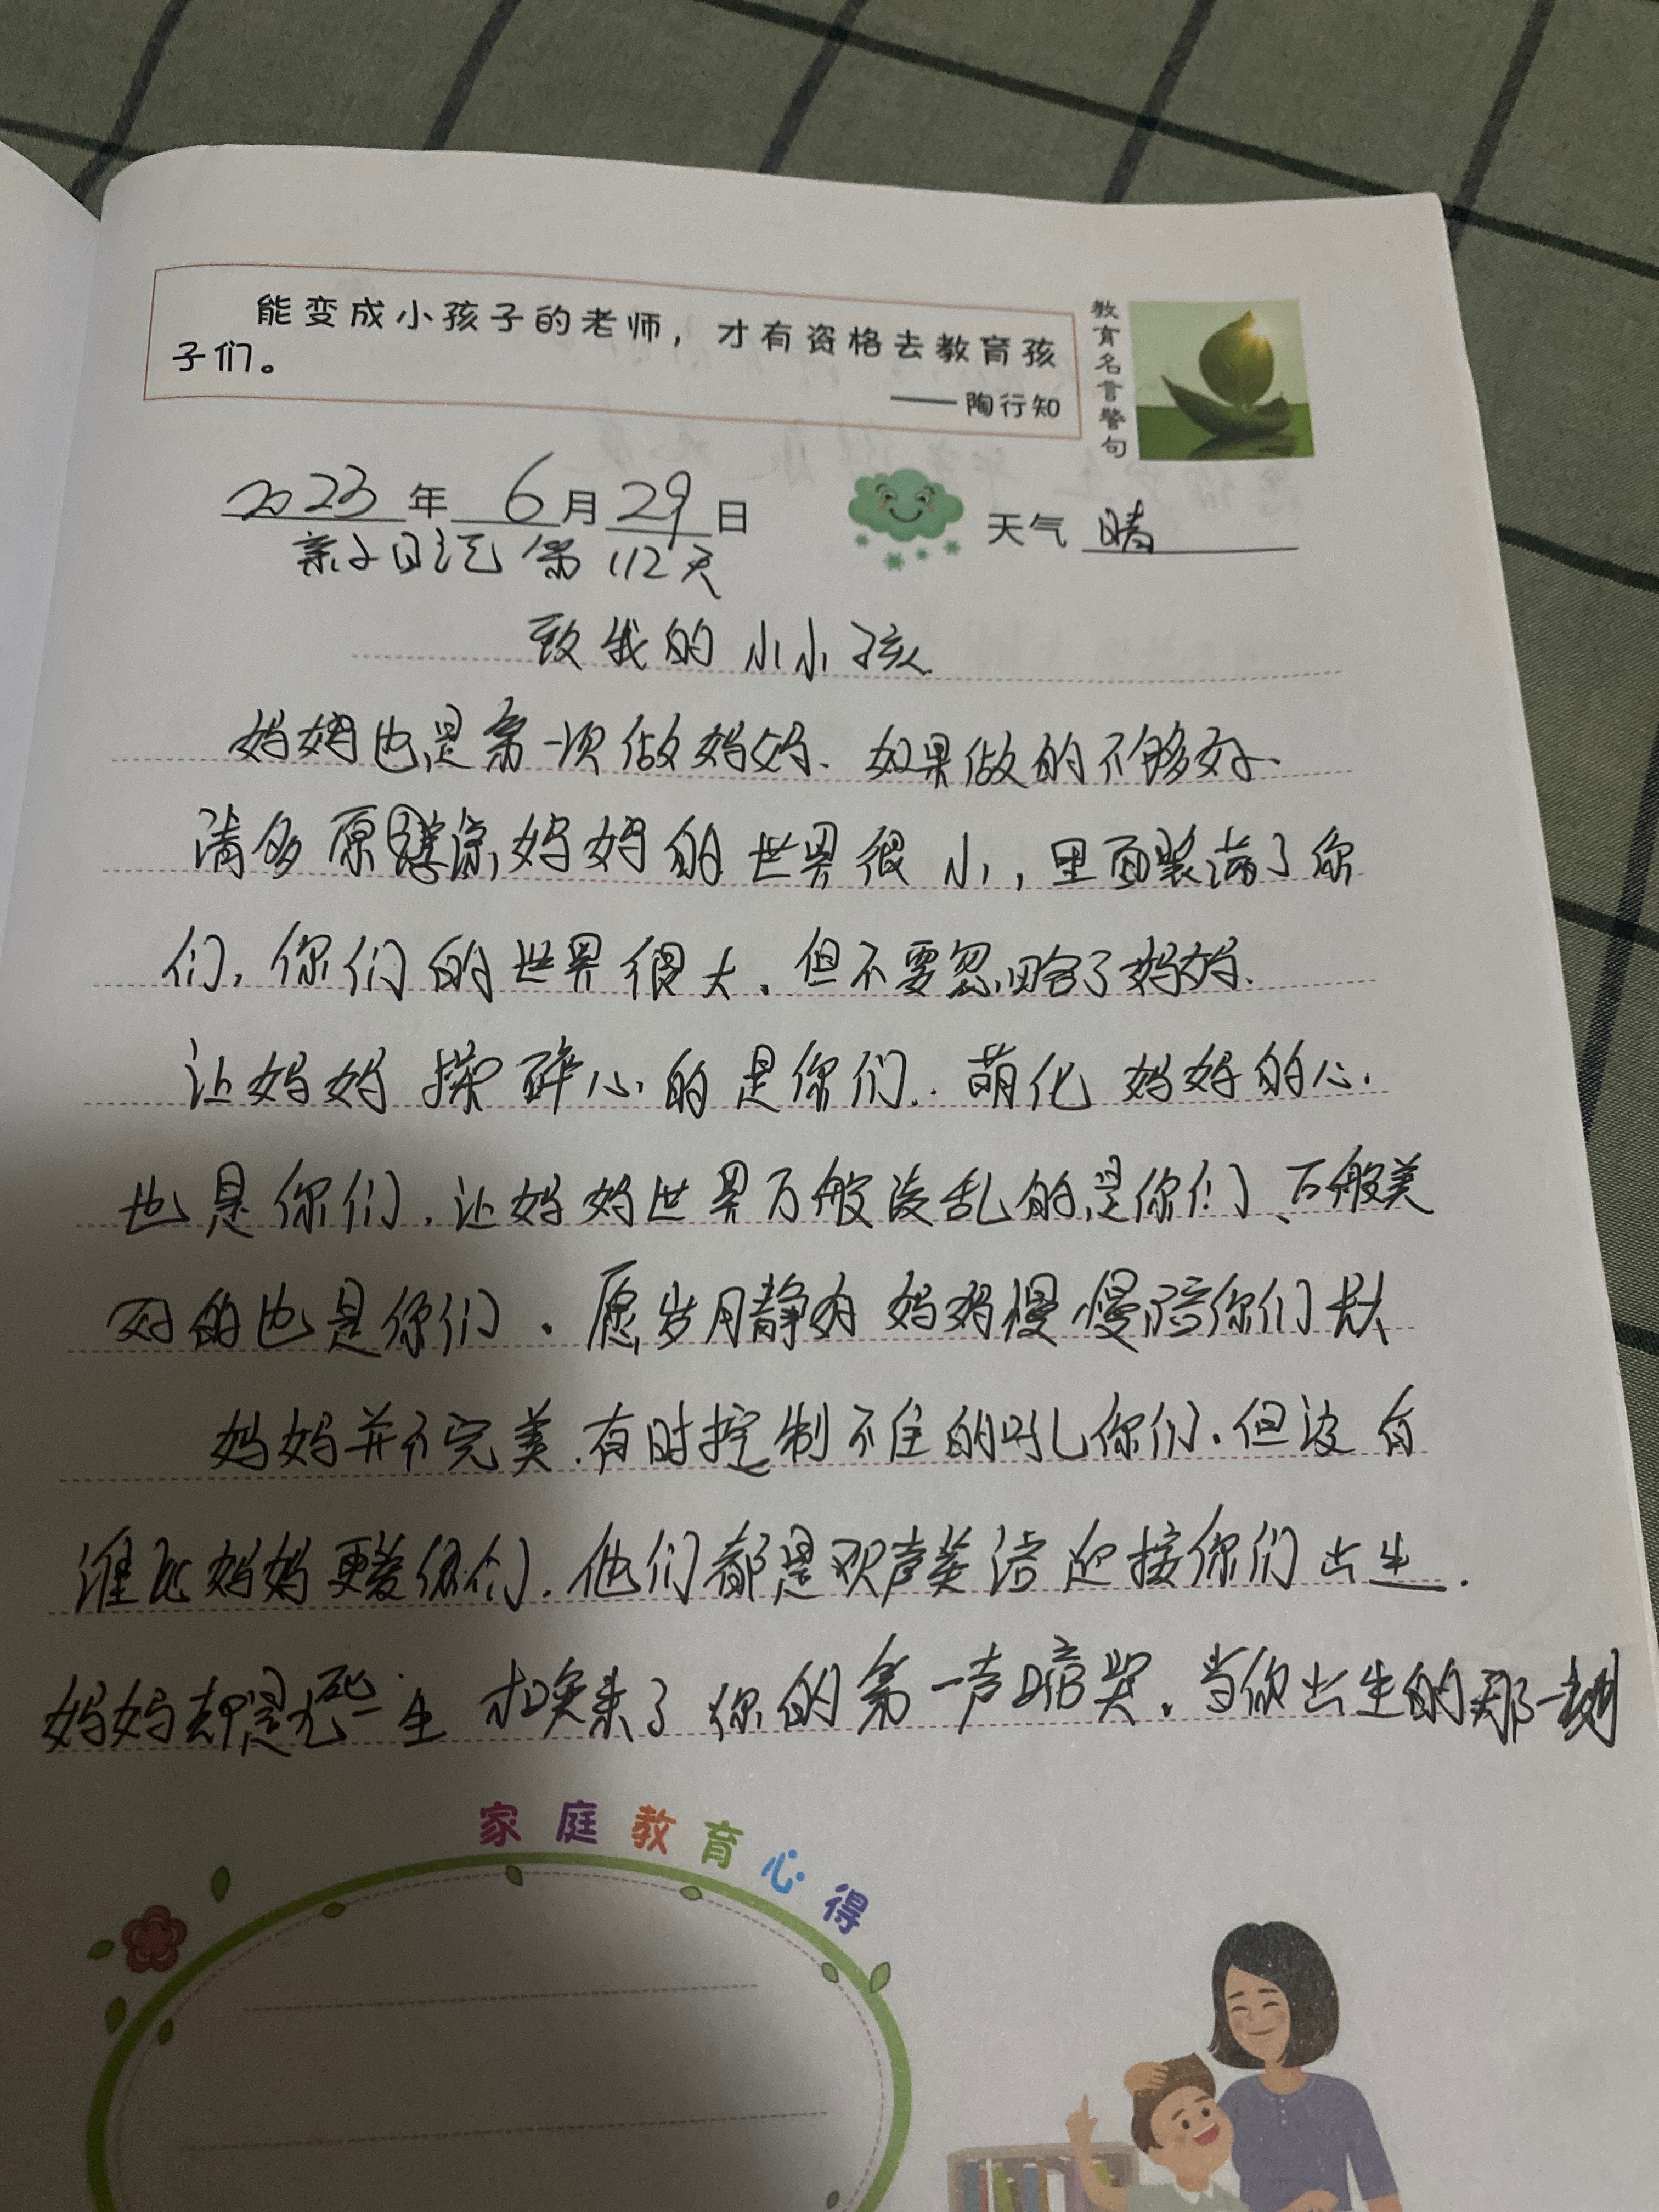 能变成小孩子的老师，才有资格去教育孩
子们。
——陶行知
教育名言警句
2023年6月29日
天气 晴
亲子日记第112天
致我的小小孩
妈妈也是第一次做妈妈、如果做的不够好、
请多原谅,妈妈的世界很小，里面装满了你
们,你们的世界很大、但不要忽略了妈妈.
让妈妈操碎心的是你们. 萌化妈妈的心.
也是你们,让妈妈世界万般凌乱的是你们、万般美
好的也是你们. 愿岁月静好 妈妈慢慢陪你们长大
妈妈并不完美.有时控制不住的吼你们.但没有
谁比妈妈更爱你们.他们都是欢声笑语迎接你们出生.
妈妈却是死一生才换来了你的第一声啼哭.当你出生的那一刻
家庭教育心得